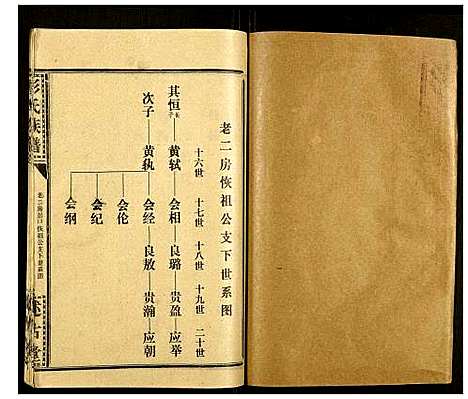 老二房恢祖公支下世系图
十六世 十七世 十八世 十九世 二十世
其恒长子——黄轼——会相——良璐——贵盈——应举
次子——黄轨——会经——良敖——贵瀚——应朝
会伦
会纪
会纲
彭氏族谱
述古堂